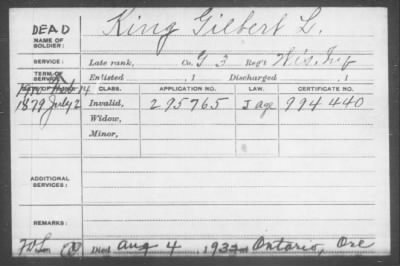 DEAD King Gilbert L.
NAME OF SOLDIER:
SERVICE: Late rank, Co. G 3 Reg't Wis. Inf
TERM OF SERVICE: Enlisted , 1 Discharged , 1
CLASS. APPLICATION NO. LAW. CERTIFICATE NO.
1879 July 2 Invalid, 295765 J age 994440
Widow,
Minor,
ADDITIONAL SERVICES:
REMARKS:
Died Aug 4, 193 Ontario, Ore